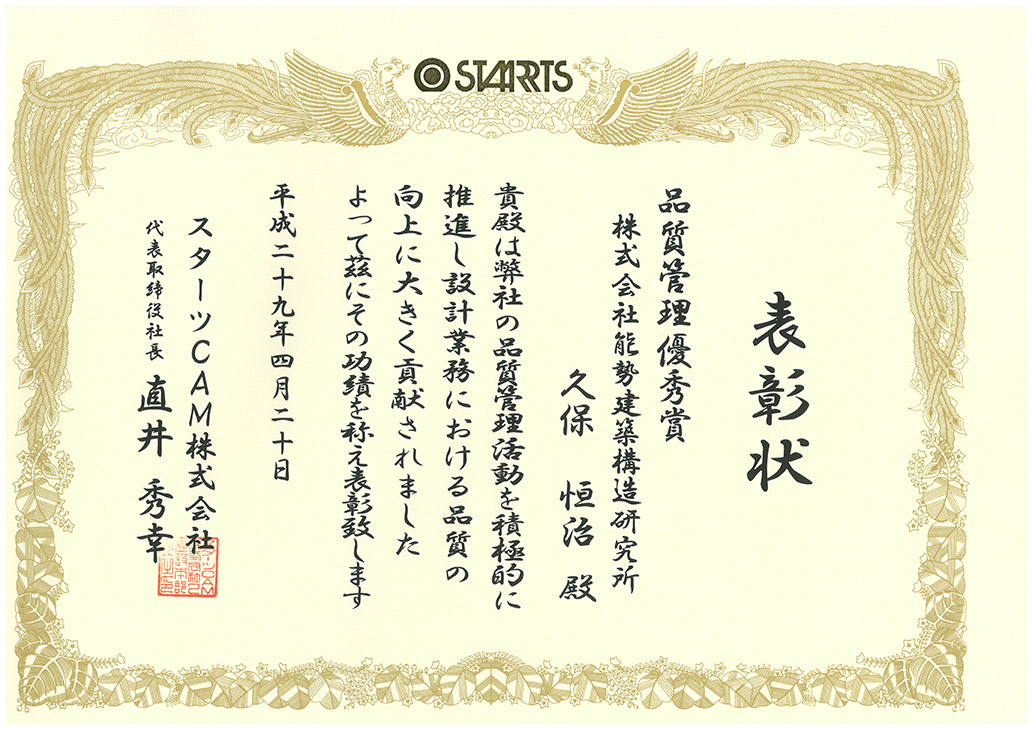 STARTS
表彰状
品質管理優秀賞
株式会社能勢建築構造研究所
久保 恒治 殿
貴殿は弊社の品質管理活動を積極的に
推進し設計業務における品質の
向上に大きく貢献されました
よって茲にその功績を称え表彰致します
平成二十九年四月二十日
スターツCAM株式会社
代表取締役社長 直井 秀幸